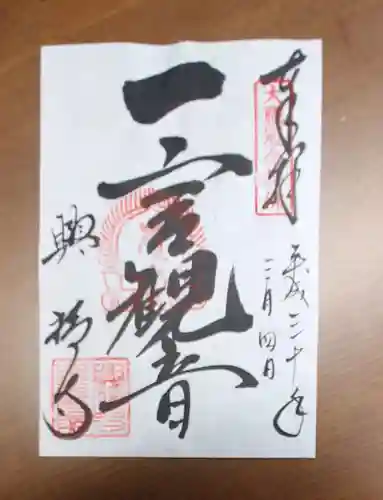 奉拝
平成二十年
二月四日
一言観音
興福寺